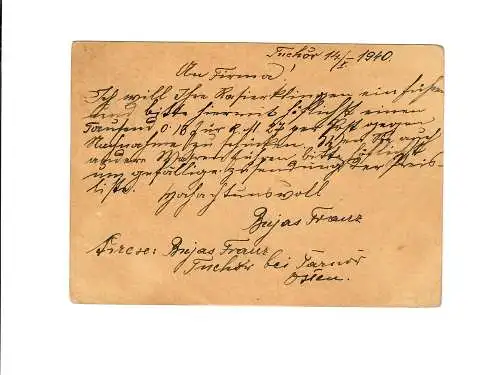 Tuchór 14/I 1940.
An Firma!
Ich will Ihre Rasierklingen einführen
und bitte hiermit höflichst einen
Tausend 0.18 für R.M. per Post gegen
Nachnahme zu schicken. Sollten Sie auch
andere Waren führen bitte höflichst
um gefällige Zusendung der Preis-
liste. Hochachtungsvoll
Bujas Franz
Adrese: Bujas Franz
Tuchór bei Tarnór
Osten.